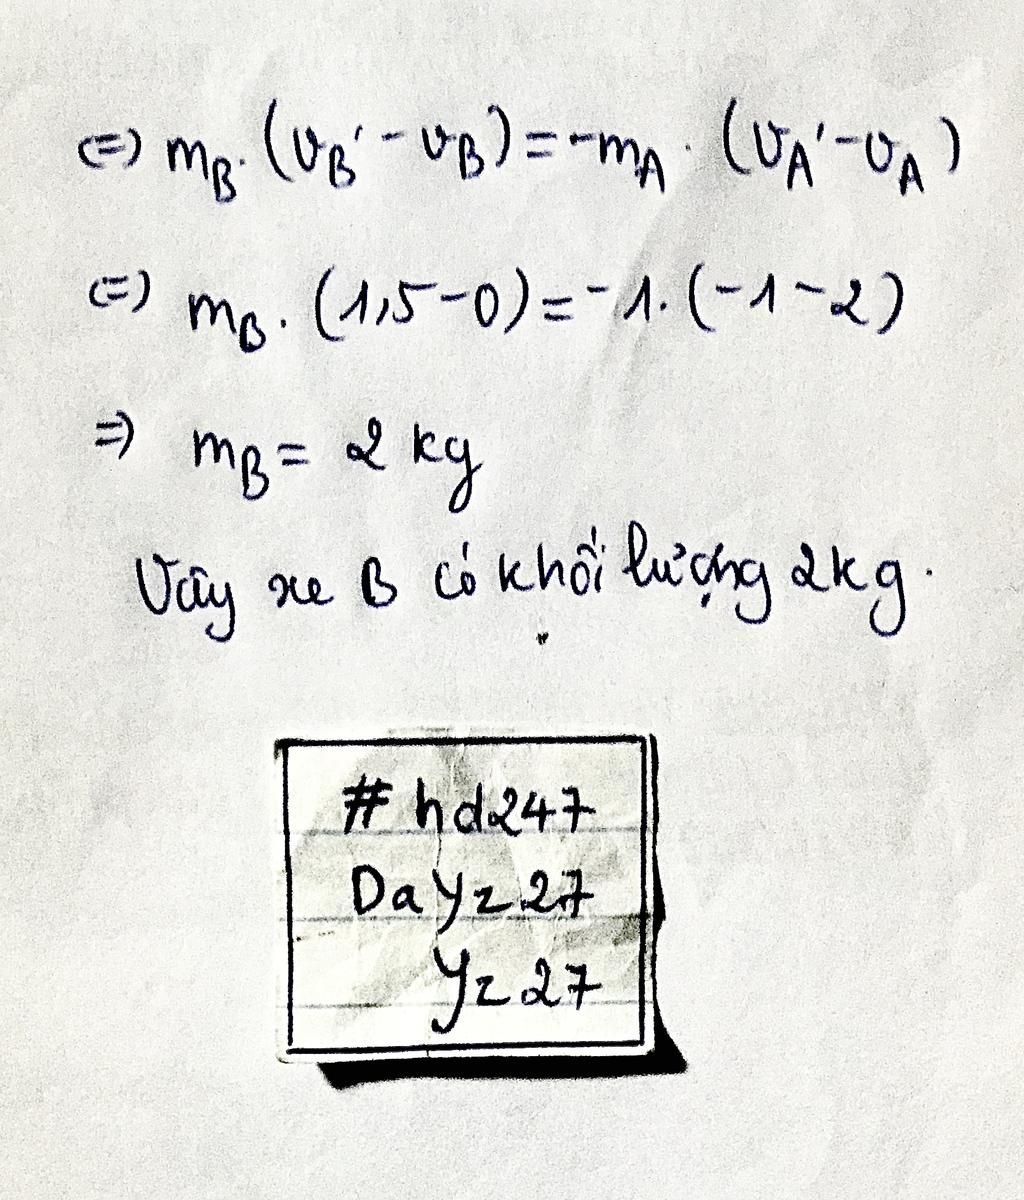 ⇔ mB. (vB' - vB) = -mA. (vA' - vA)
⇔ mB. (1,5 - 0) = -1. (-1 - 2)
⇒ mB = 2 kg
Vậy xe B có khối lượng 2kg.
# hd247
Dayz27
Yz27